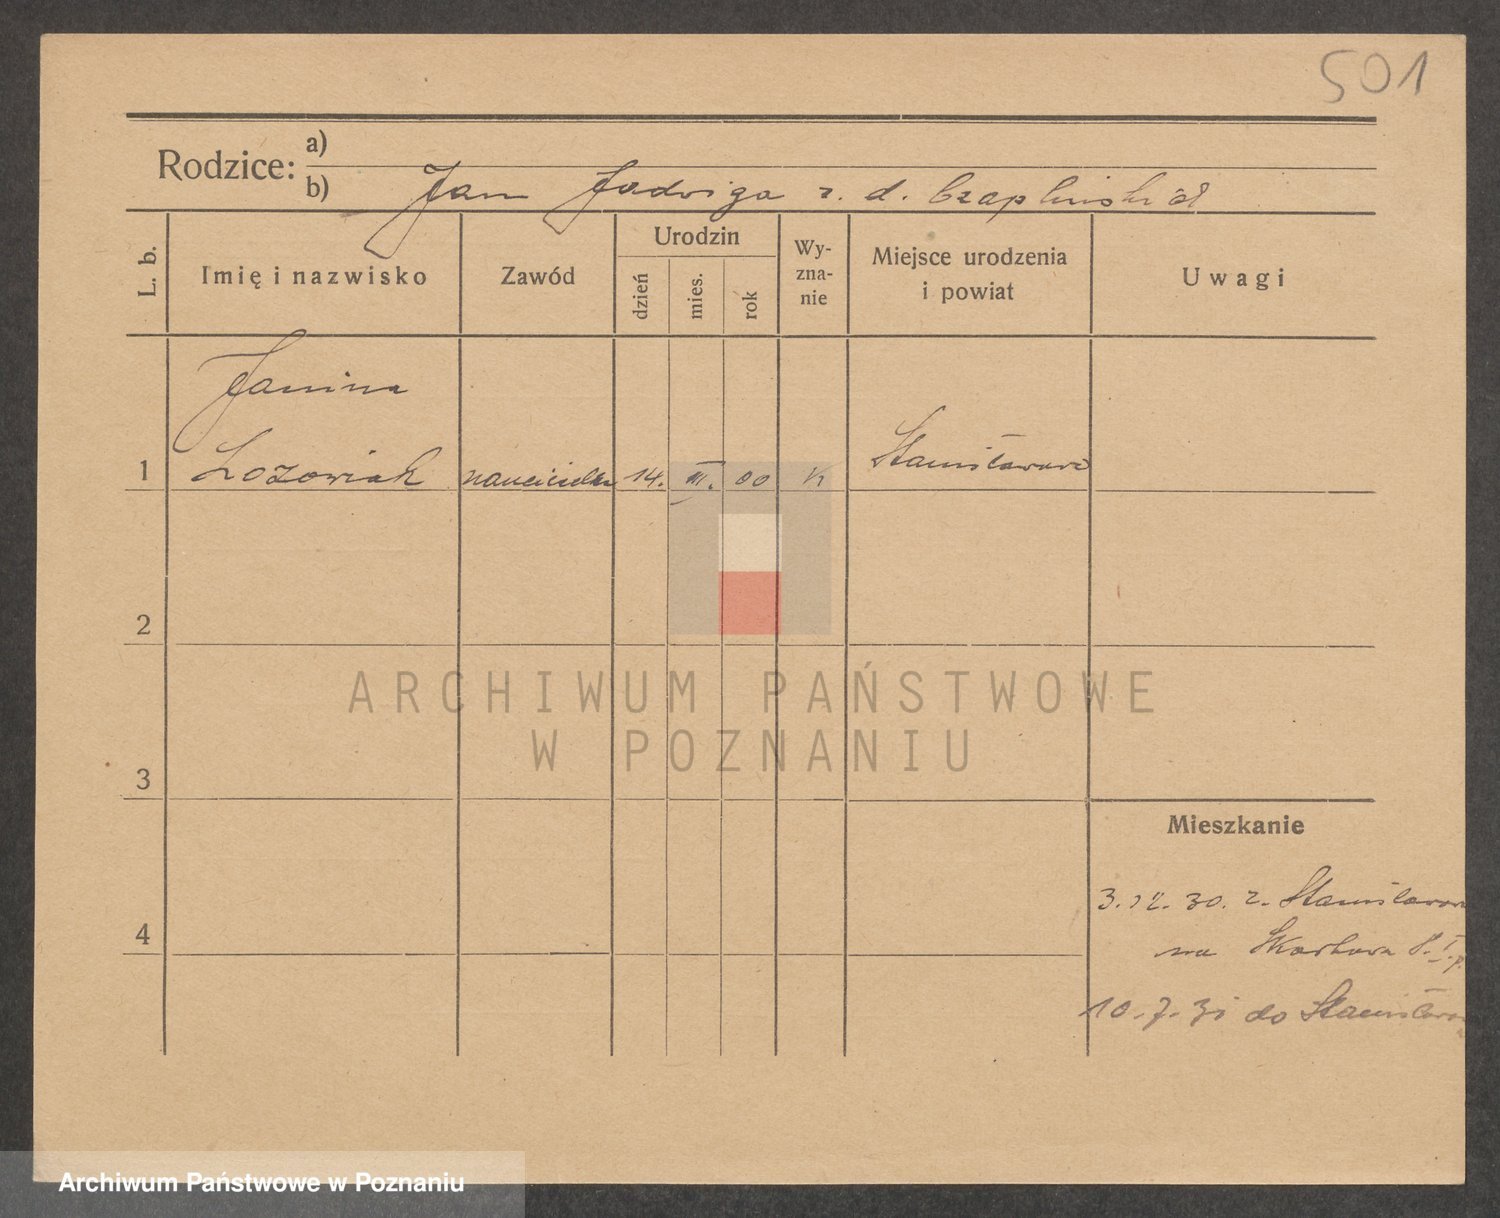 501
Rodzice: a)
b) Jan Jadwiga z. d. Czaplińskich
L. b.
Imię i nazwisko
Zawód
Urodzin
dzień
mies.
rok
Wy-
zna-
nie
Miejsce urodzenia
i powiat
Uwagi
Janina
1 Lozowiak nauczycielka 14. III. 00 K Stanisławów
2
3
4
Mieszkanie
3. 12. 30. z. Stanisławowa
na Skarbowa 8. I. p.
10. 7. 31 do Stanisławowa
ARCHIWUM PAŃSTWOWE
W POZNANIU
Archiwum Państwowe w Poznaniu